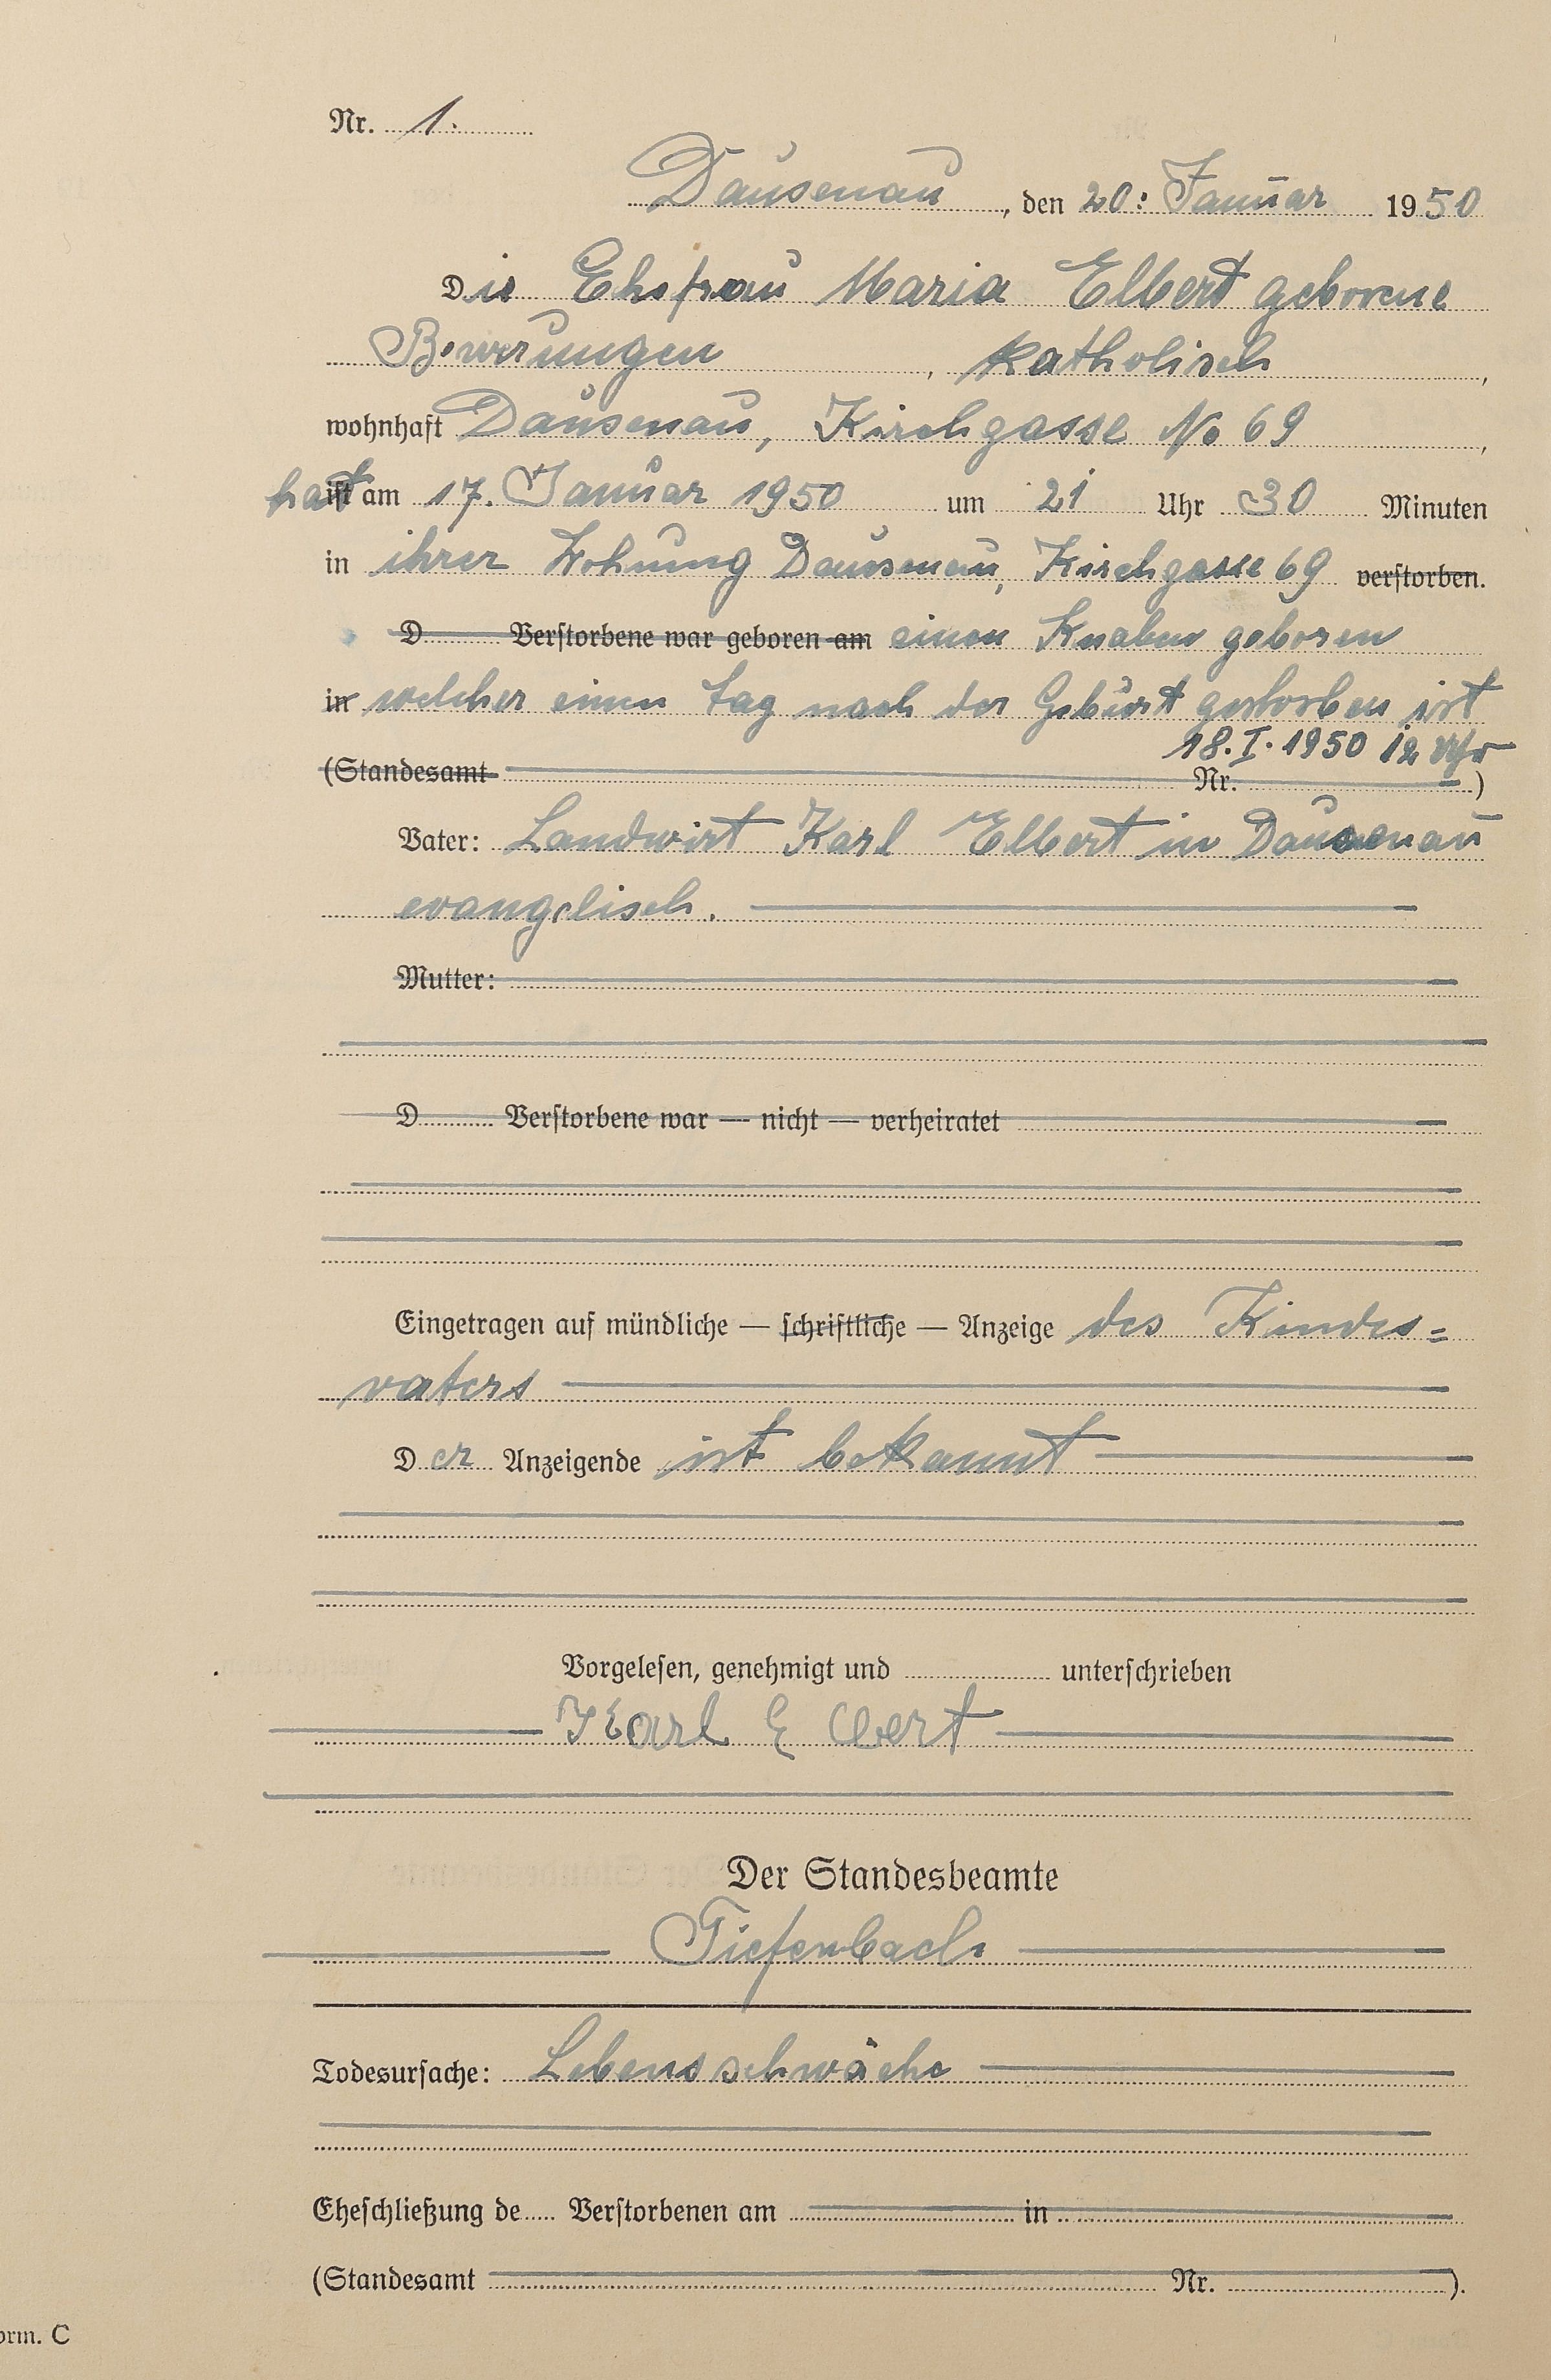 Nr. 1.
Dausenau, den 20. Januar 1950
Die Ehefrau Maria Elbert geborene
katholisch,
wohnhaft Dausenau, Kirchgasse No 69,
hat ist am 17. Januar 1950 um 21 Uhr 30 Minuten
in ihrer Wohnung Dausenau, Kirchgasse 69 verstorben.
D Verstorbene war geboren am einen Knaben geboren
in welcher einen Tag nach der Geburt gestorben ist
18. I. 1950 12 Uhr
(Standesamt Nr. )
Vater: Landwirt Karl Elbert in Dausenau
evangelisch.
Mutter:
D Verstorbene war — nicht — verheiratet
Eingetragen auf mündliche — schriftliche — Anzeige des Kindes=
vaters
Der Anzeigende ist bekannt
Vorgelesen, genehmigt und unterschrieben
Karl Elbert
Der Standesbeamte
Tiefenbach
Todesursache: Lebensschwäche
Eheschließung de Verstorbenen am in
(Standesamt Nr. ).
orm. C